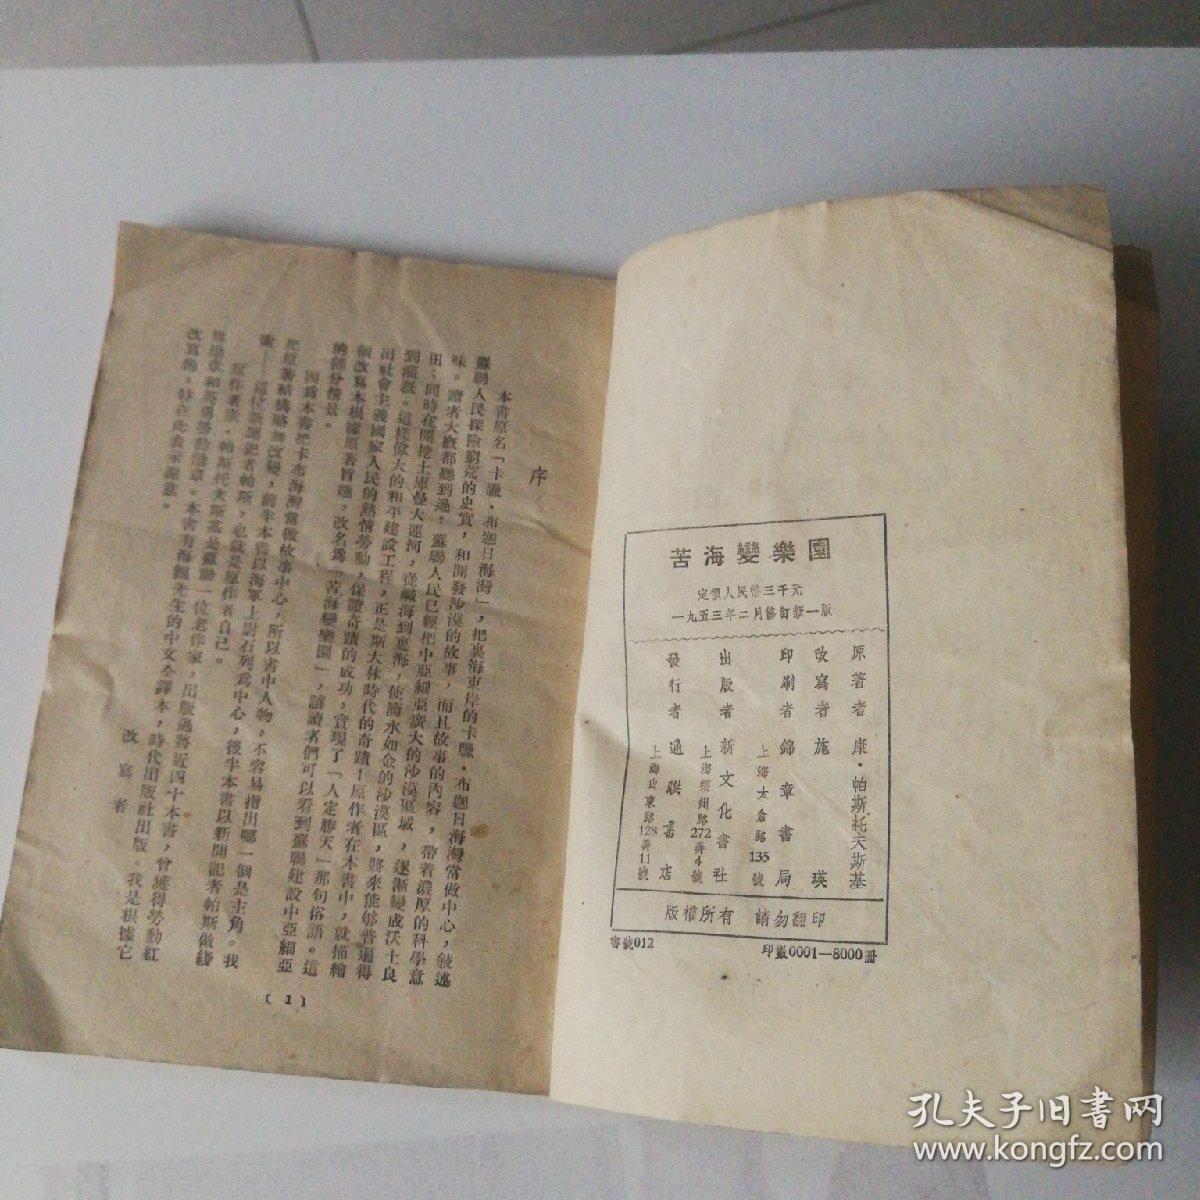 苦海變樂園
定價人民幣三千元
一九五三年二月修訂第一版
原著者 康·帕斯托夫斯基
改寫者 施瑛
印刷者 錦章書局
上海太倉路135號
出版者 新文化書社
上海福州路272弄4號
發行者 通聯書店
上海山東路128弄11號
版權所有 請勿翻印
書號012
印數0001—8000冊
序
本書原名「卡臘·布迦日海灣」，把裏海東岸的卡臘·布迦日海灣當做中心，敍述
蘇聯人民探險窮荒的史實，和開發沙漠的故事，而且故事的內容，帶着濃厚的科學意
味。讀者大概都聽到過，蘇聯人民已經把中亞細亞廣大的沙漠區域，逐漸變成沃土良
田；同時在開挖土庫曼大運河，從鹹海到裏海，使滴水如金的沙漠區，將來能够普遍得
到灌溉。這樣偉大的和平建設工程，正是斯大林時代的奇蹟！原作者在本書中，就描繪
出社會主義國家人民的熱情勞動，保證奇蹟的成功，實現了「人定勝天」那句俗語。這
個改寫本根據原著旨趣，改名爲「苦海變樂園」，讓讀者們可以看到蘇聯建設中亞細亞
的部分情景。
因爲本書把卡布海灣當做故事中心，所以書中人物，不容易指出哪一個是主角。我
把原著結構略加改變，前半本書以海軍上尉石列爲中心，後半本書以新聞記者帕斯做綫
索——這位新聞記者帕斯，也就是原作者自己。
原作者康·帕斯托夫斯基是蘇聯一位老作家，出版過將近四十本書，曾獲得勞動紅
旗勛章和英勇勞動勛章。本書有海觀先生的中文全譯本，時代出版社出版。我是根據它
改寫的，特在此表示謝意。
改寫者
〔1〕
孔夫子旧書网
www.kongfz.com